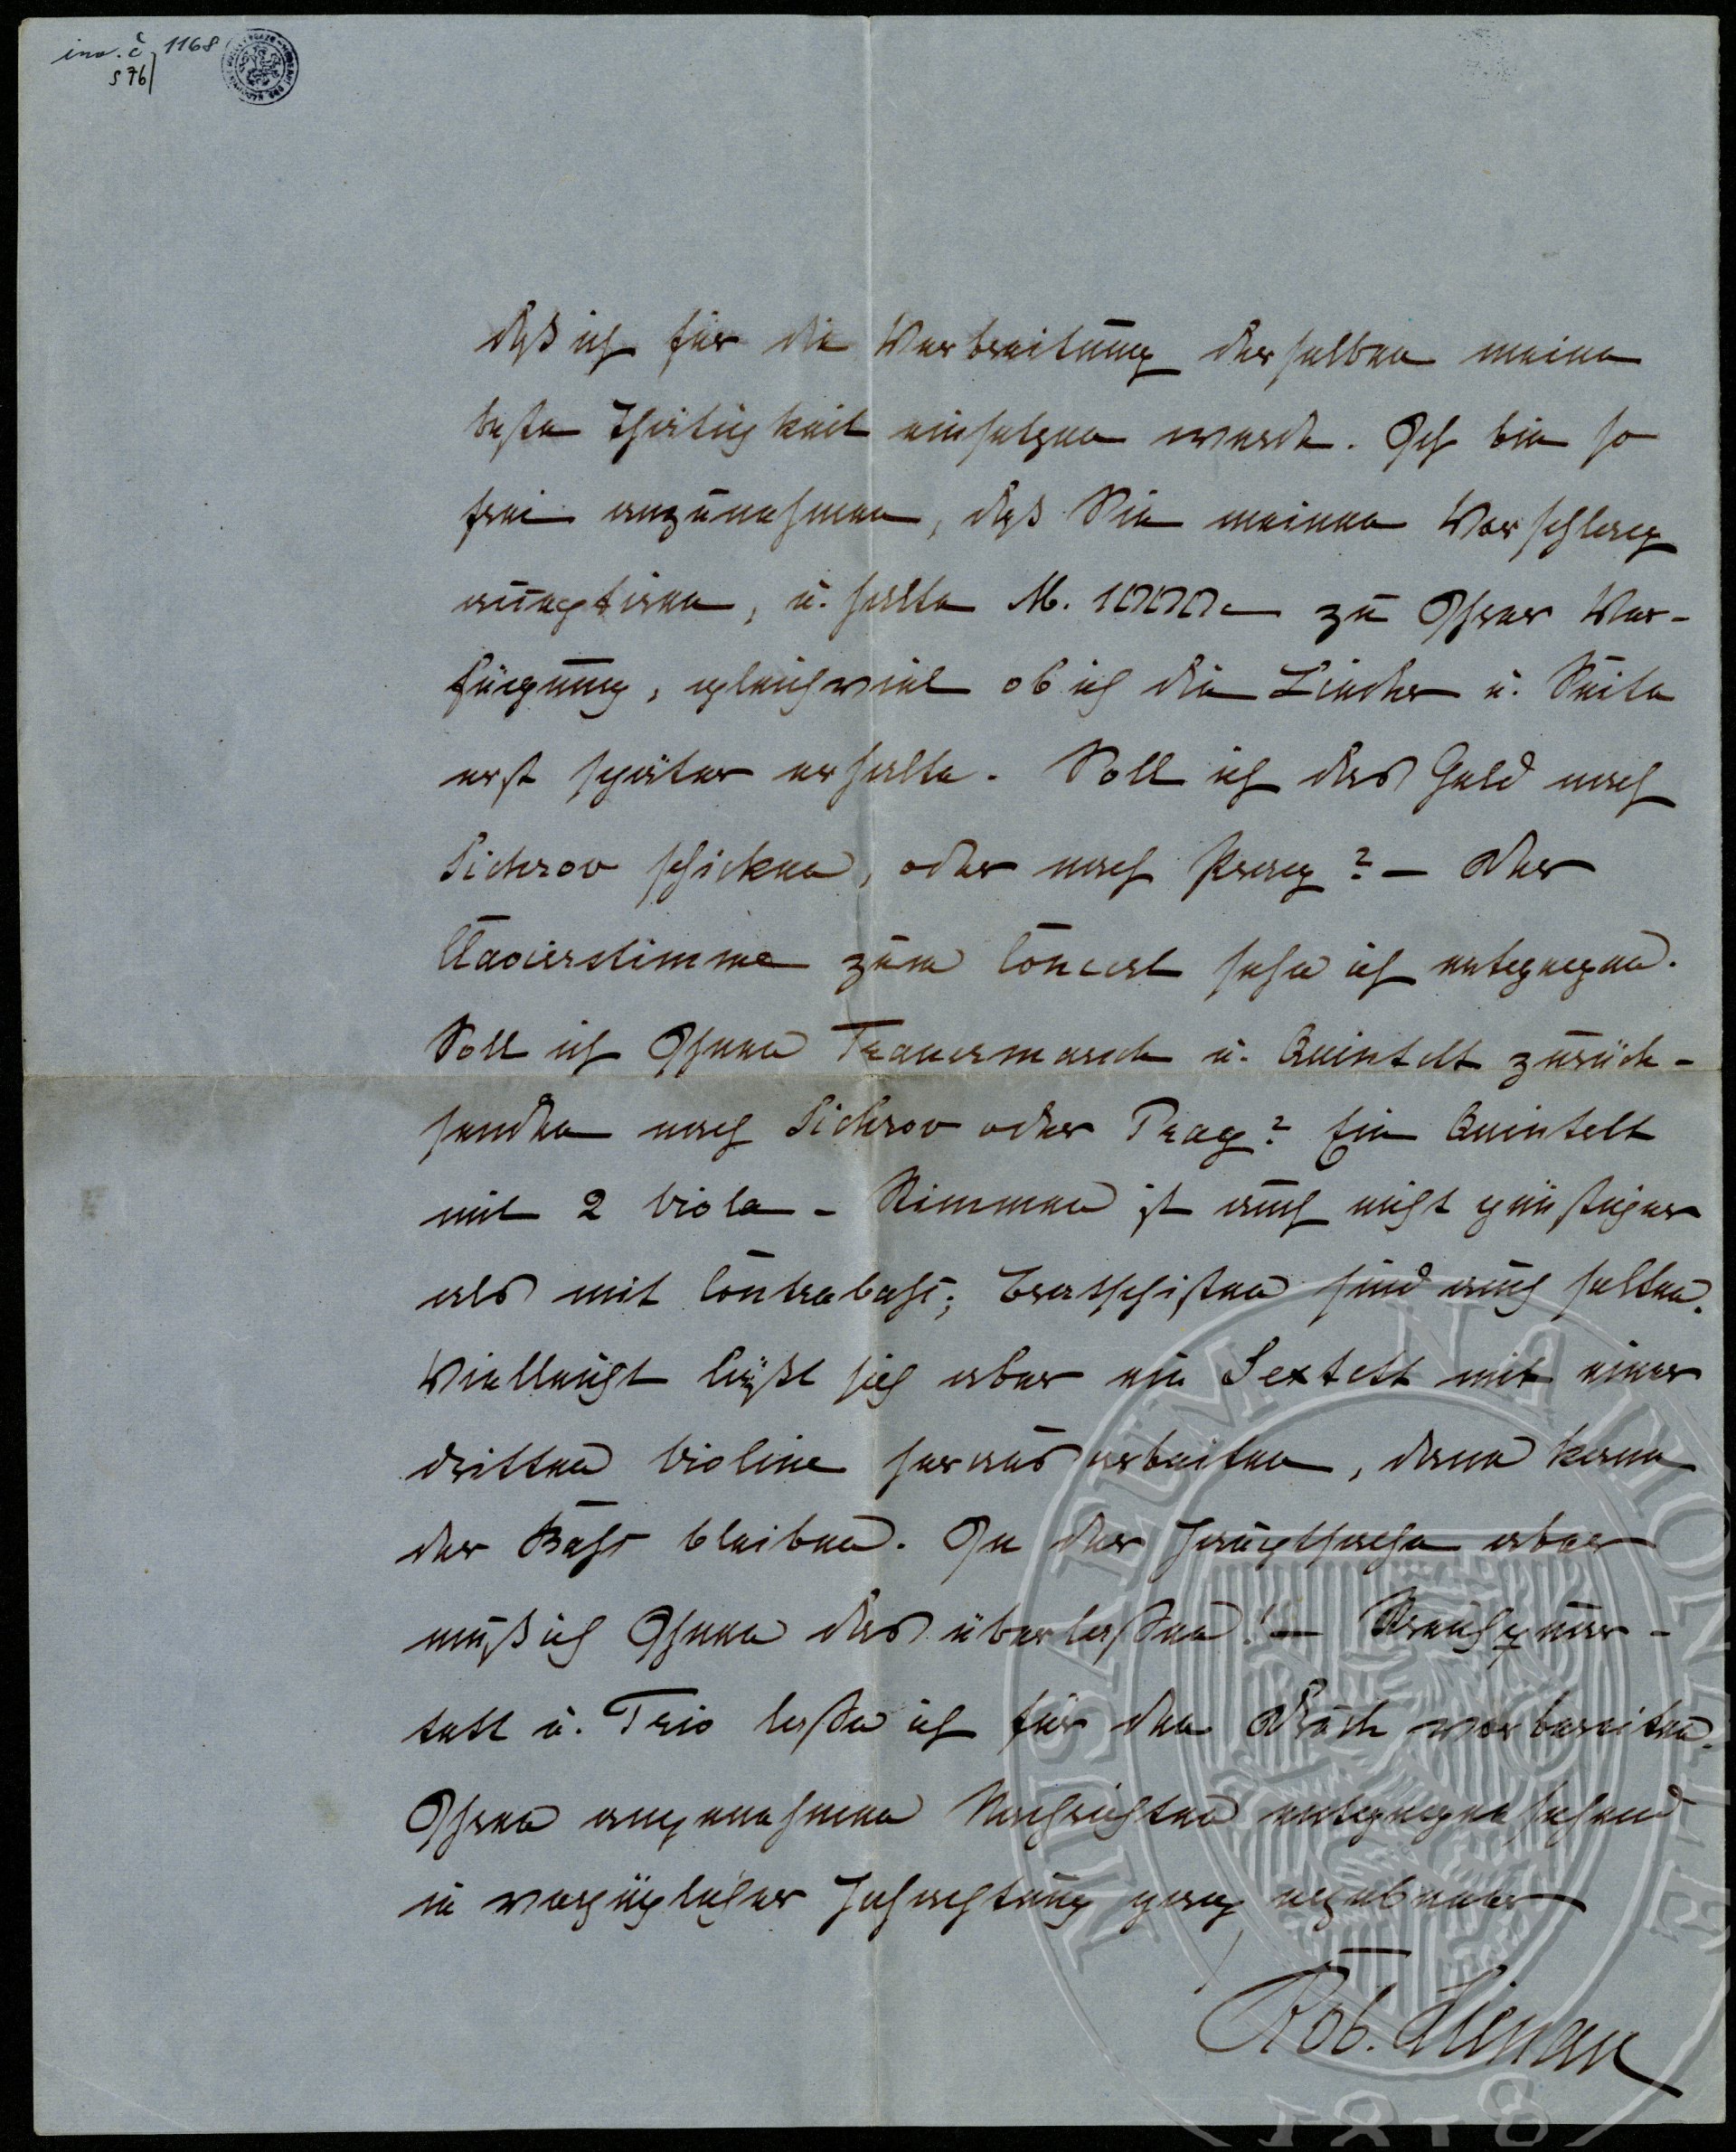 inv. č. 1168
S 76/
daß ich für die Verbreitung derselben meine
beste Thätigkeit einsetzen werde. Ich bin so
frei anzunehmen, daß Sie meinen Vorschlag
acceptiren, u. halte M. 1000 zu Ihrer Ver-
fügung, gleichviel ob ich die Lieder u. Suite
erst später erhalte. Soll ich das Geld nach
Sichrov schicken, oder nach Prag? — Der
Clavierstimme zum Concert sehe ich entgegen.
Soll ich Ihnen Trauermarsch u. Quintett zurück-
senden nach Sichrov oder Prag? Ein Quintett
mit 2 Viola-Stimmen ist auch nicht günstiger
als mit Contrabass; Bratschisten sind auch selten.
Vielleicht ließe sich aber ein Sextett mit einer
dritten Violine herausarbeiten, dann kann
der Bass bleiben. In der Hauptsache aber
muß ich Ihnen das überlassen! — Streichquar-
tett u. Trio lasse ich für den Druck vorbereiten.
Ihren angenehmen Nachrichten entgegensehend
in vorzüglicher Hochachtung ganz ergebener
Rob. Lienau
MUSAEUM NATIONALE
1818